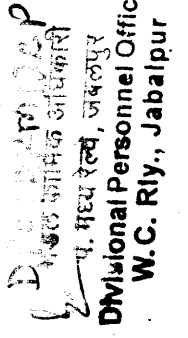 मंडल कार्मिक अधिकारी
प. मध्य रेल्वे, जबलपुर
Divisional Personnel Offic
W.C. Rly., Jabalpur